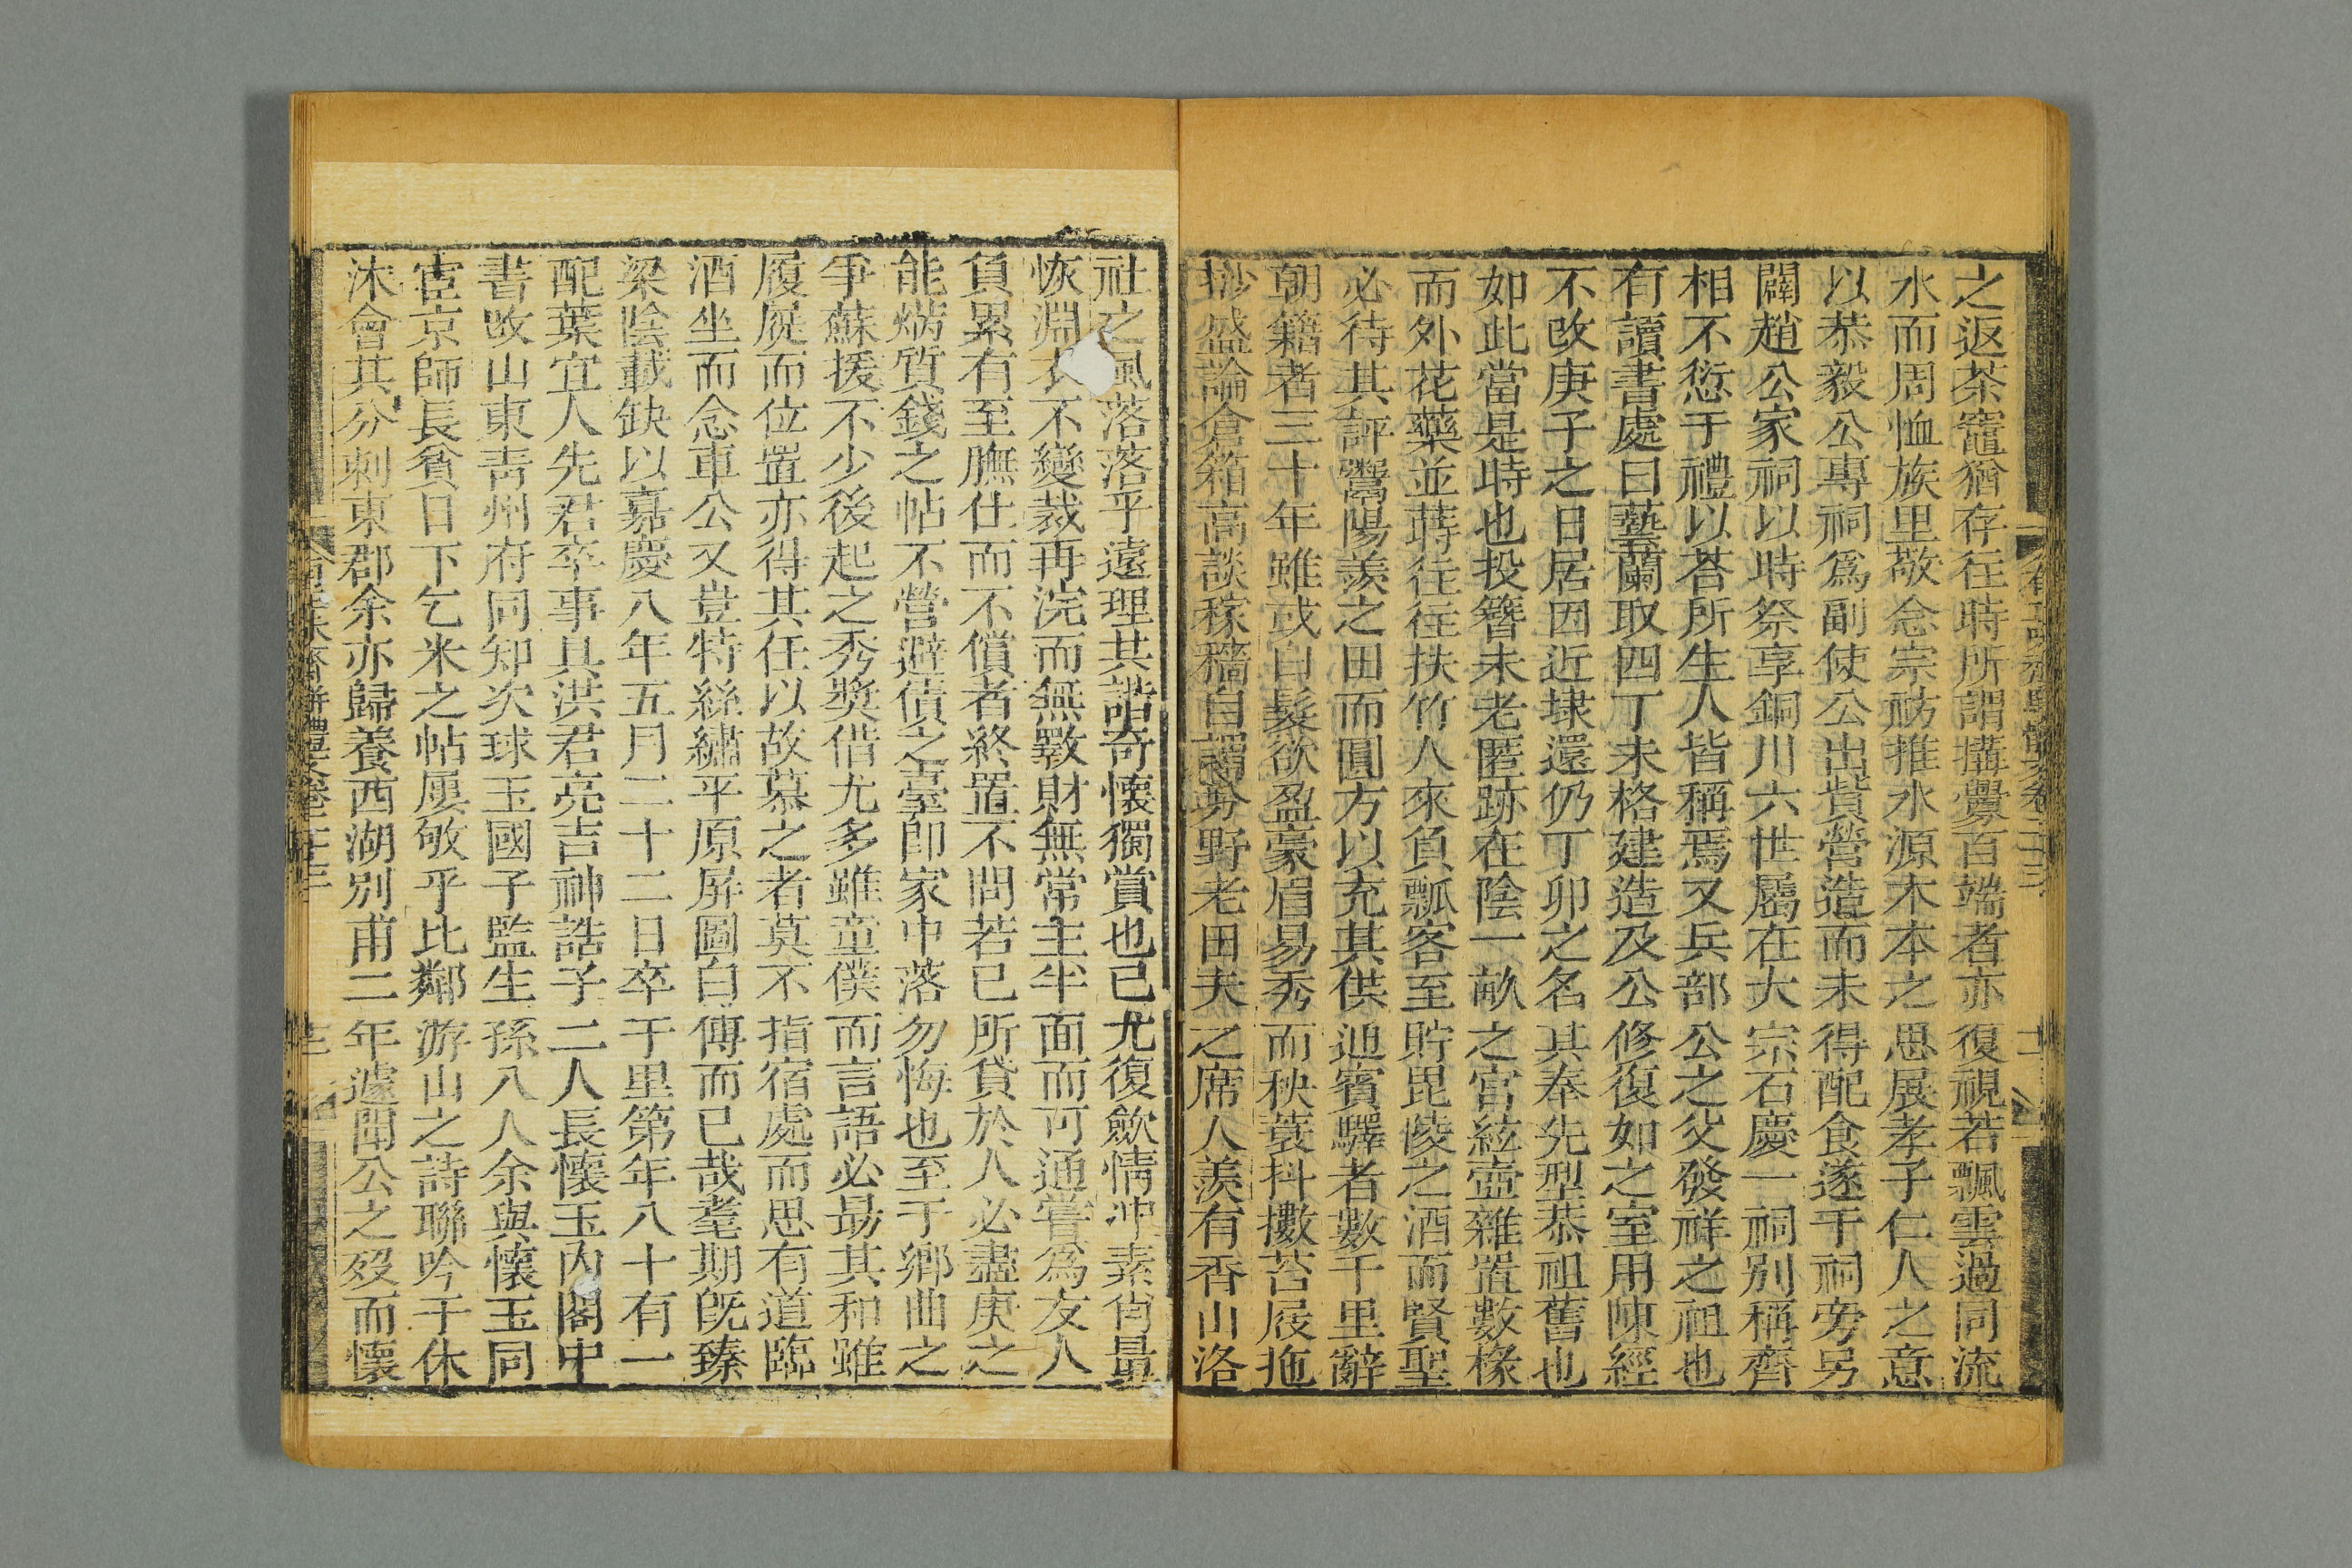 之返茶竈猶存往時所謂搆釁百端者亦復視若飄雲過同流
水而周恤族里敬念宗祊推水源木本之思展孝子仁人之意
以恭毅公專祠爲副使公出貲營造而未得配食遂于祠旁另
闢趙公家祠以時祭享銅川六世屬在大宗石慶一祠別稱齊
相不愆于禮以荅所生人皆稱焉又兵部公之父發祥之祖也
有讀書處曰藝蘭取四丁未格建造及公修復如之室用陳經
不改庚子之日居因近埭還仍丁卯之名其奉先型恭祖舊也
如此當是時也投簪未老匿跡在陰一畝之宮絃壺雜置數椽
而外花藥並蒔往往扶竹人來負瓢客至貯毘陵之酒而賢聖
必待其評鬻陽羨之田而圓方以充其供迎賓驛者數千里辭
朝籍者三十年雖或白髮欲盈豪眉易秀而秧蓑抖擻苔屐拖
抄盛論倉箱高談稼穡自謂勞野老田夫之席人羨有香山洛
社之風落落乎遠理其諧奇懷獨賞也已尤復歛情沖素肯量
恢淵衣不變裁再浣而無斁財無常主半面而可通嘗爲友人
負累有至膴仕而不償者終置不問若已所貸於人必盡庚之
能焫質錢之帖不營避債之臺卽家中落勿悔也至于鄉曲之
爭蘇援不少後起之秀奬借尤多雖童僕而言語必易其和雖
履屣而位置亦得其任以故慕之者莫不指宿處而思有道臨
酒坐而念車公又豈特絲繡平原屛圖白傅而已哉耄期旣臻
梁陰載缺以嘉慶八年五月二十二日卒于里第年八十有一
配葉宜人先君卒事具洪君亮吉神誥子二人長懷玉內閣中
書改山東青州府同知次球玉國子監生孫八人余與懷玉同
宦京師長貧日下乞米之帖屢敂乎比鄰游山之詩聯吟于休
沐會其分刺東郡余亦歸養西湖別甫二年遽聞公之歿而懷